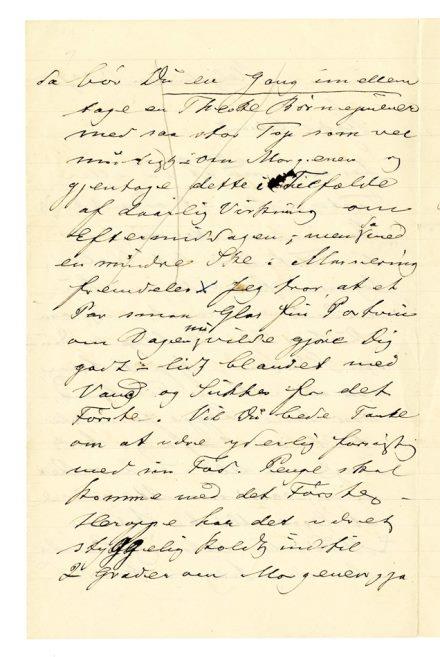 da bør Du en Gang imellem
tage en Theske Børnepulver
med saa stor Top som vel
muligt om Morgenen og
gjentage dette i Tilfælde
af daarlig Virkning om
Eftermiddagen, men da med
en mindre Ske: Massering
fremdeles x Jeg tror, at et
Par smaa Glas fin Portvin
om Dagen nu, vilde gjøre Dig
godt – lidt blandet med
Vand og Sukker for det
Første. Vil Du bede Tante
om at være yderlig forsigtig
med sin Fod. Penge skal
komme med det Første –
Heroppe har det været
styggelig koldt, indtil
2 Grader om Morgenen, ja